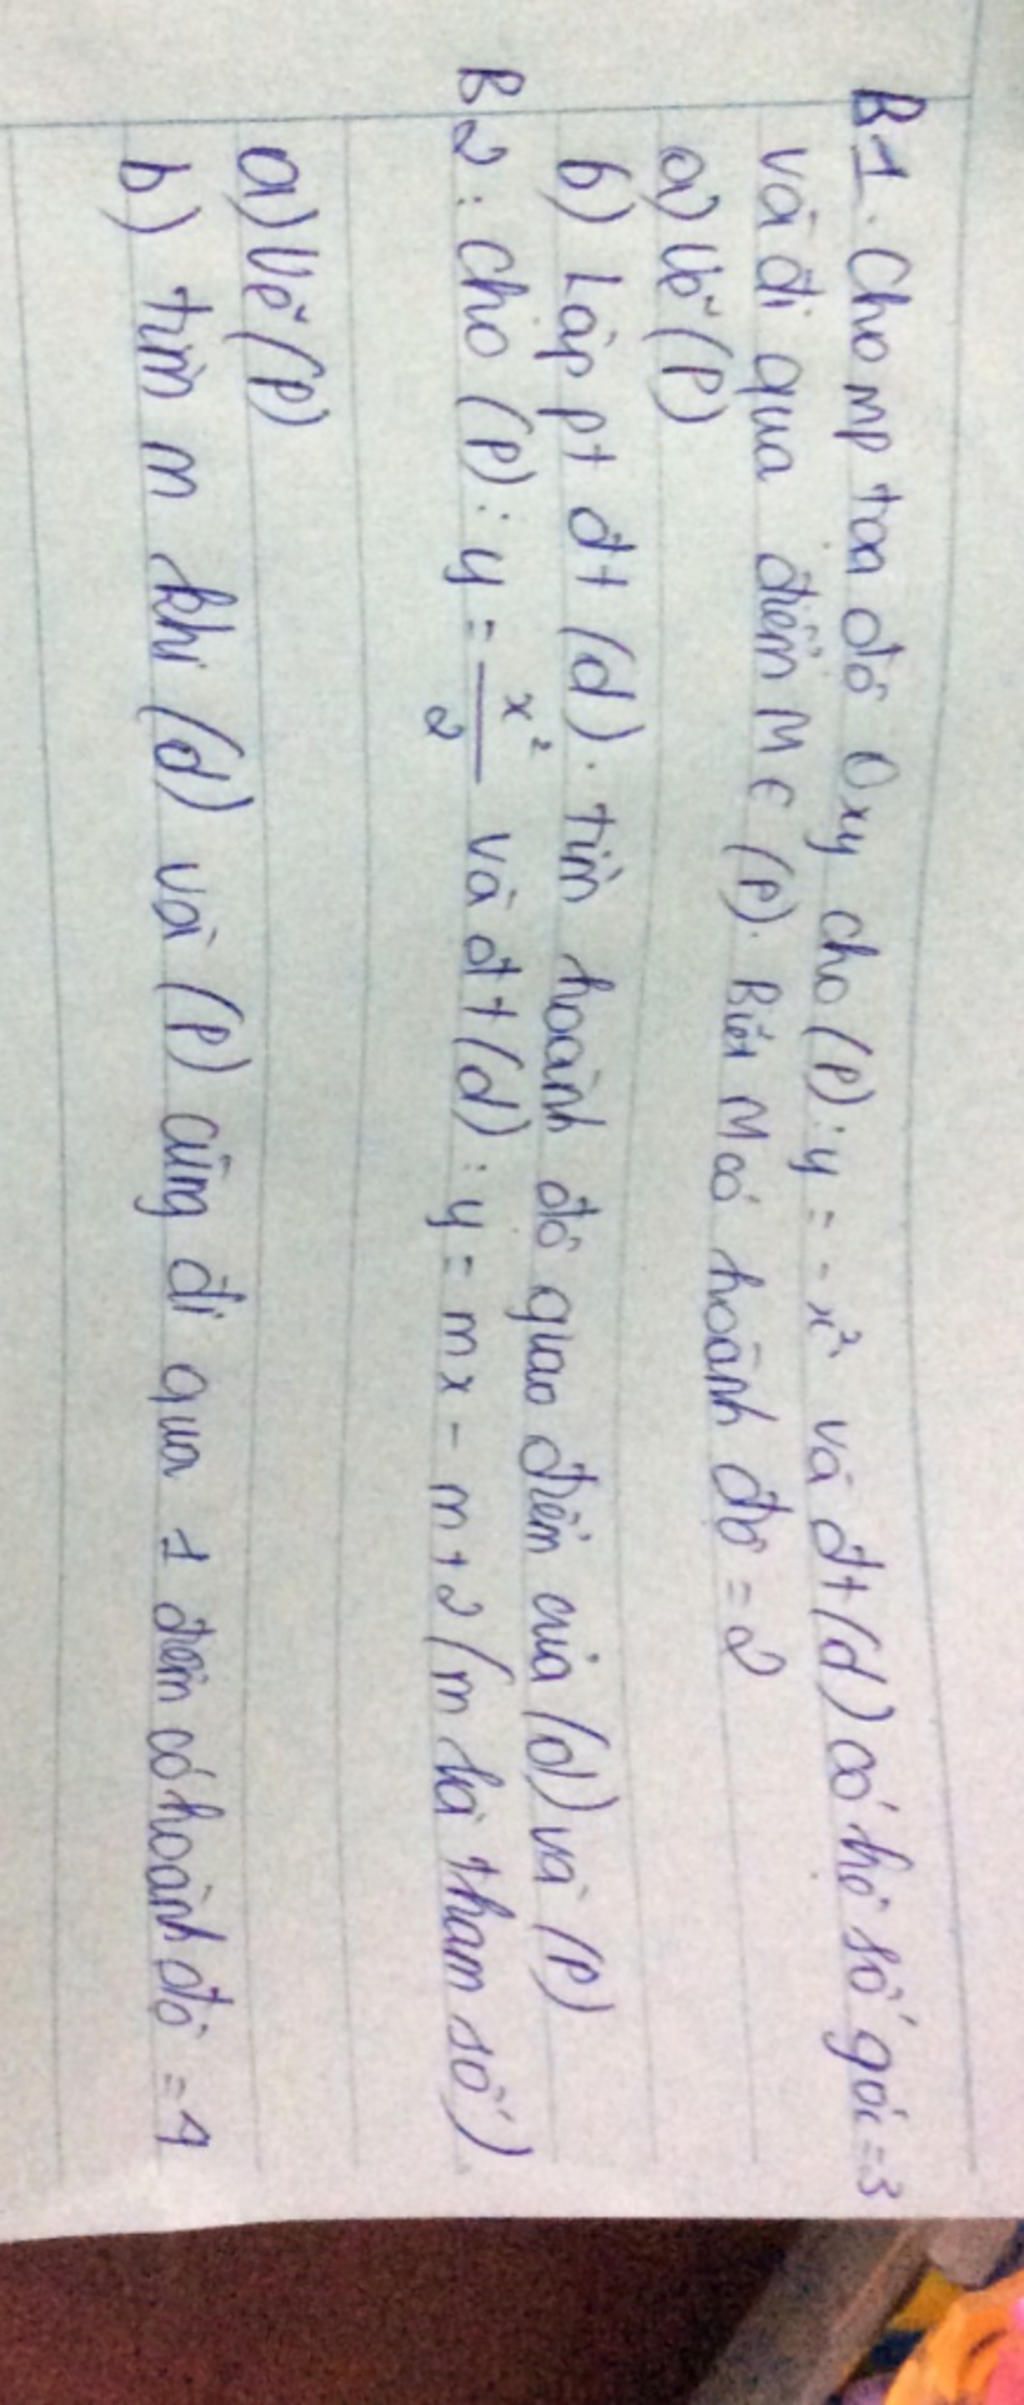 B1. Cho mp tọa độ Oxy cho (P): y = -x² và đt (d) có hệ số góc = 3
và đi qua điểm M ∈ (P). Biết M có hoành độ = 2
a) Vẽ (P)
b) Lập pt đt (d). tìm hoành độ giao điểm của (d) và (P)
B2: Cho (P): y = x²/2 và đt (d): y = mx - m + 2 (m là tham số)
a) Vẽ (P)
b) tìm m khi (d) với (P) cùng đi qua 1 điểm có hoành độ = 4